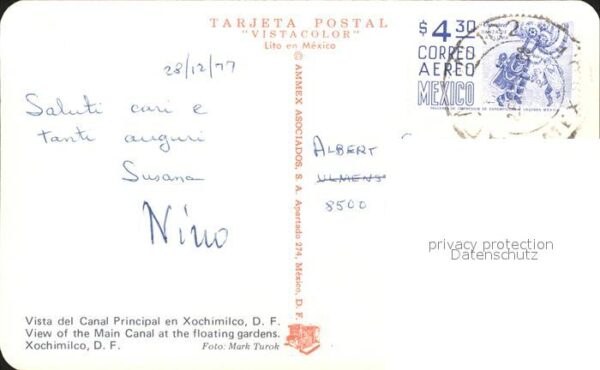 TARJETA POSTAL
"VISTACOLOR"
Lito en México
$4.30
CORREO
AEREO
MEXICO
28/12/77
Saluti cari e
tanti auguri
Susana
Nino
© AMMEX ASOCIADOS, S. A. Apartado 274, México, D. F.
ALBERT
ULMENS
8500
privacy protection
Datenschutz
Vista del Canal Principal en Xochimilco, D. F.
View of the Main Canal at the floating gardens.
Xochimilco, D. F.
Foto: Mark Turok